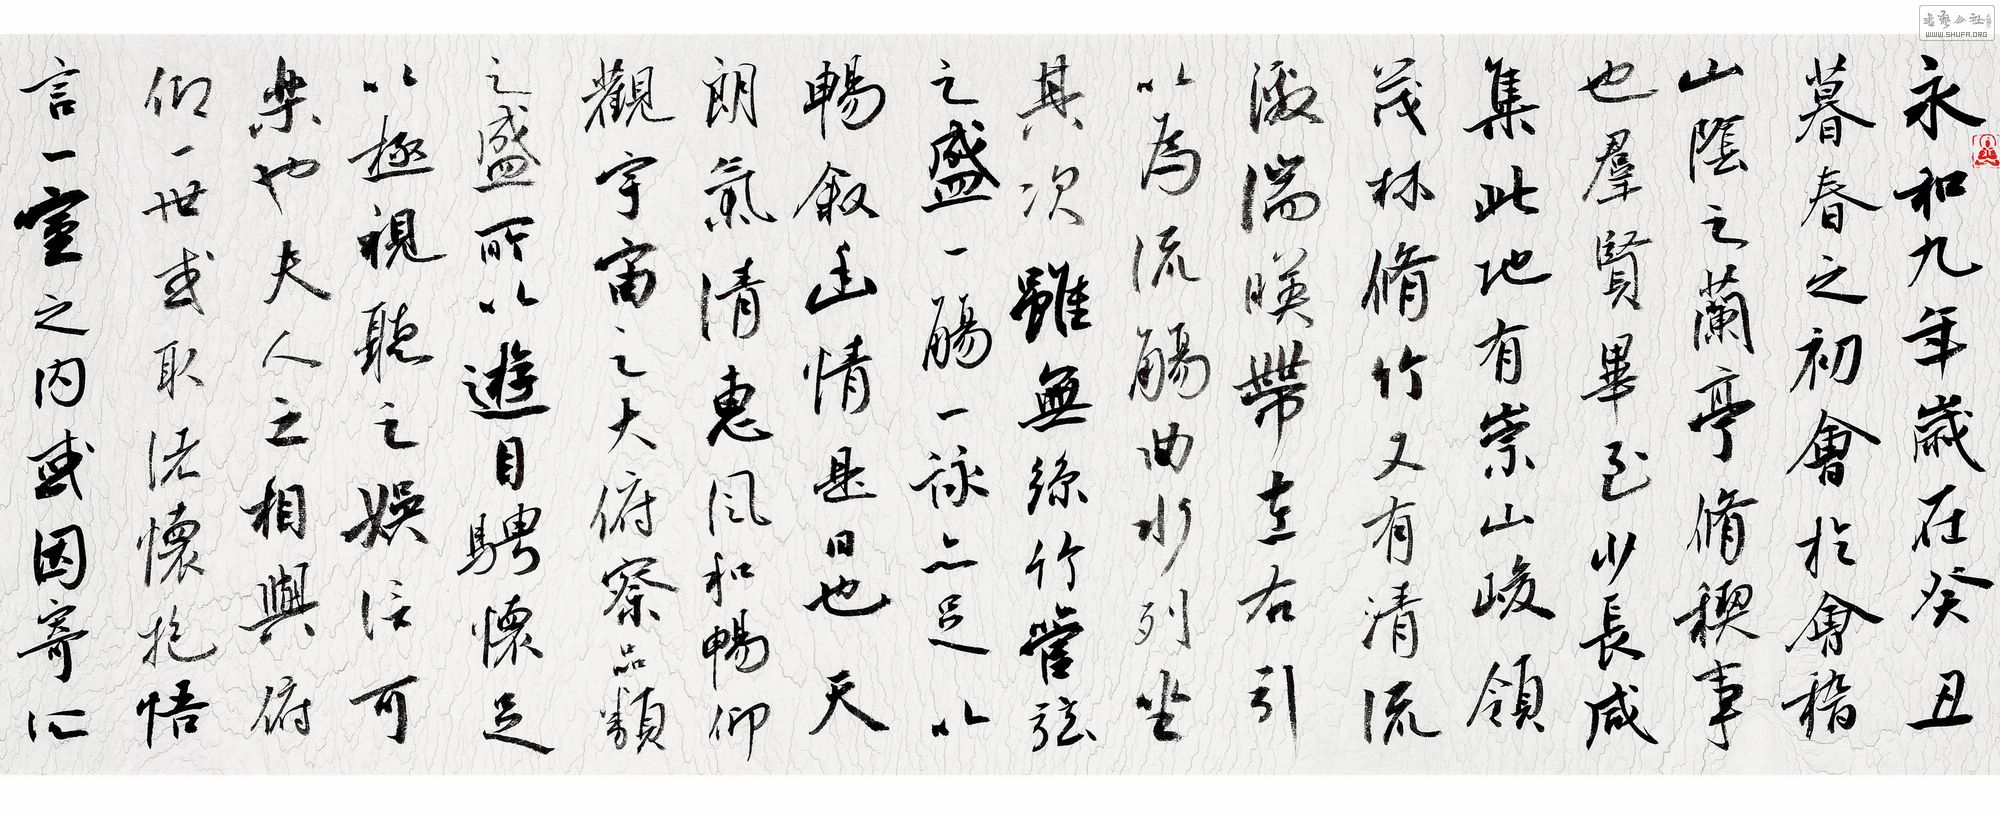 永和九年歲在癸丑
暮春之初會於會稽
山陰之蘭亭脩稧事
也羣賢畢至少長咸
集此地有崇山峻領
茂林脩竹又有清流
激湍暎帶左右引
以為流觴曲水列坐
其次雖無絲竹管弦
之盛一觴一詠亦足以
暢敘幽情是日也天
朗氣清惠風和暢仰
觀宇宙之大俯察品類
之盛所以遊目騁懷足
以極視聽之娛信可
樂也夫人之相與俯
仰一世或取諸懷抱悟
言一室之內或因寄
書藝公社
WWW.SHUFA.ORG